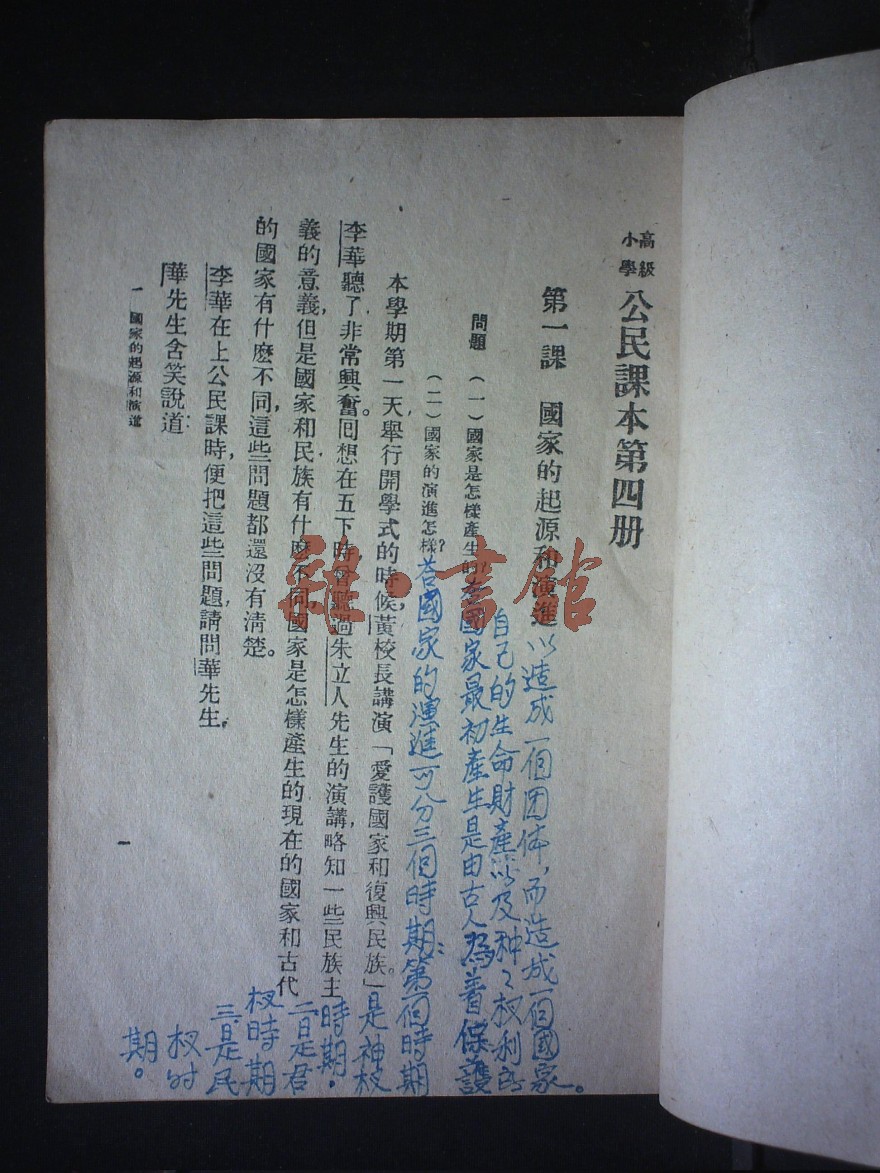 高級
小學
公民課本第四册
第一課　國家的起源和演進
問題　(一)國家是怎樣產生的?
答國家最初產生是由古人為着保護
自己的生命財產以及種〻权利所
以造成一個团体,而造成一個國家。
(二)國家的演進怎樣?
答國家的演進可分三個時期:第一個時期
是神权
時期。
二是君
权時期
三是民
权时
期。
本學期第一天,舉行開學式的時候,黃校長講演「愛護國家和復興民族。」
李華聽了,非常興奮。回想在五下時,曾聽過朱立人先生的演講,略知一些民族主
義的意義,但是國家和民族有什麽不同,國家是怎樣產生的,現在的國家和古代
的國家有什麽不同,這些問題都還沒有清楚。
李華在上公民課時,便把這些問題,請問華先生。
華先生含笑說道:
一　國家的起源和演進
一
雜·書館